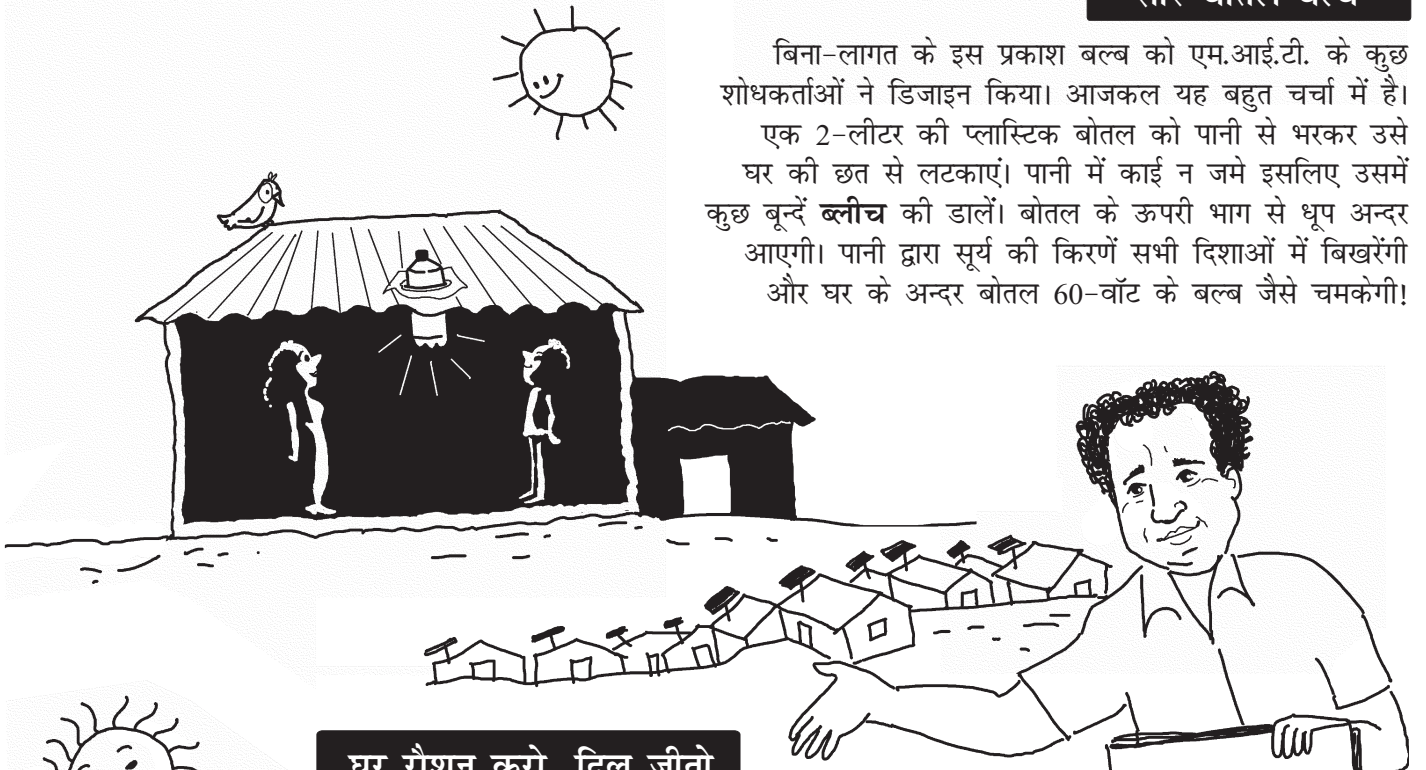 सौर बोतल बल्ब
बिना-लागत के इस प्रकाश बल्ब को एम.आई.टी. के कुछ
शोधकर्ताओं ने डिजाइन किया। आजकल यह बहुत चर्चा में है।
एक 2-लीटर की प्लास्टिक बोतल को पानी से भरकर उसे
घर की छत से लटकाएं। पानी में काई न जमे इसलिए उसमें
कुछ बून्दें ब्लीच की डालें। बोतल के ऊपरी भाग से धूप अन्दर
आएगी। पानी द्वारा सूर्य की किरणें सभी दिशाओं में बिखरेंगी
और घर के अन्दर बोतल 60-वॉट के बल्ब जैसे चमकेगी!
घर रौशन करो, दिल जीतो